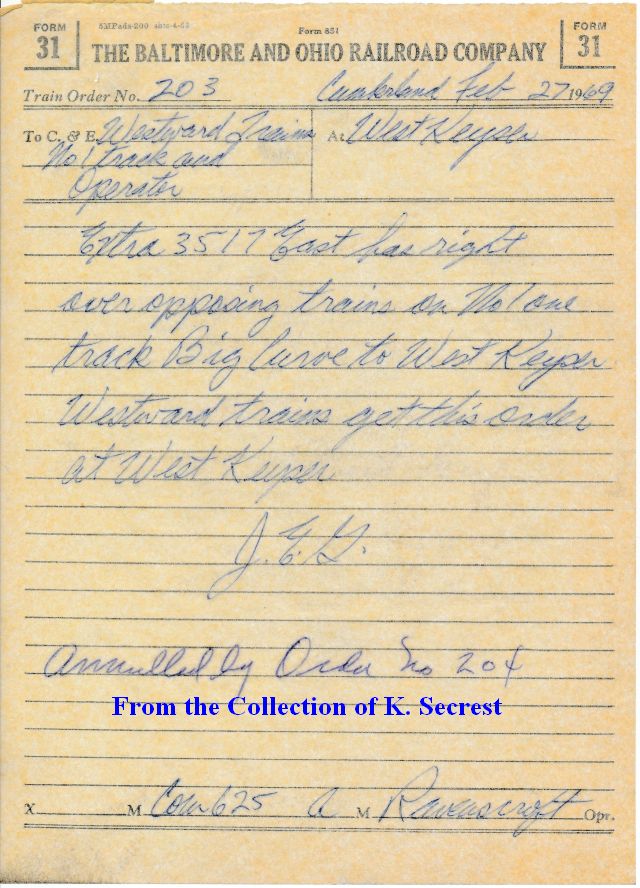 FORM 31
5MPads-200 sets-4-63
Form 851
FORM 31
THE BALTIMORE AND OHIO RAILROAD COMPANY
Train Order No. 203 Cumberland Feb 27 1969
To C. & E. Westward Trains At West Keyser
No 1 track and
Operator
Extra 3517 East has right
over opposing trains on No 1 one
track Big Curve to West Keyser
Westward trains get this order
at West Keyser
J.E.G.
Annulled by Order No 204
From the Collection of K. Secrest
X M Com 625 A M Ravenscroft Opr.